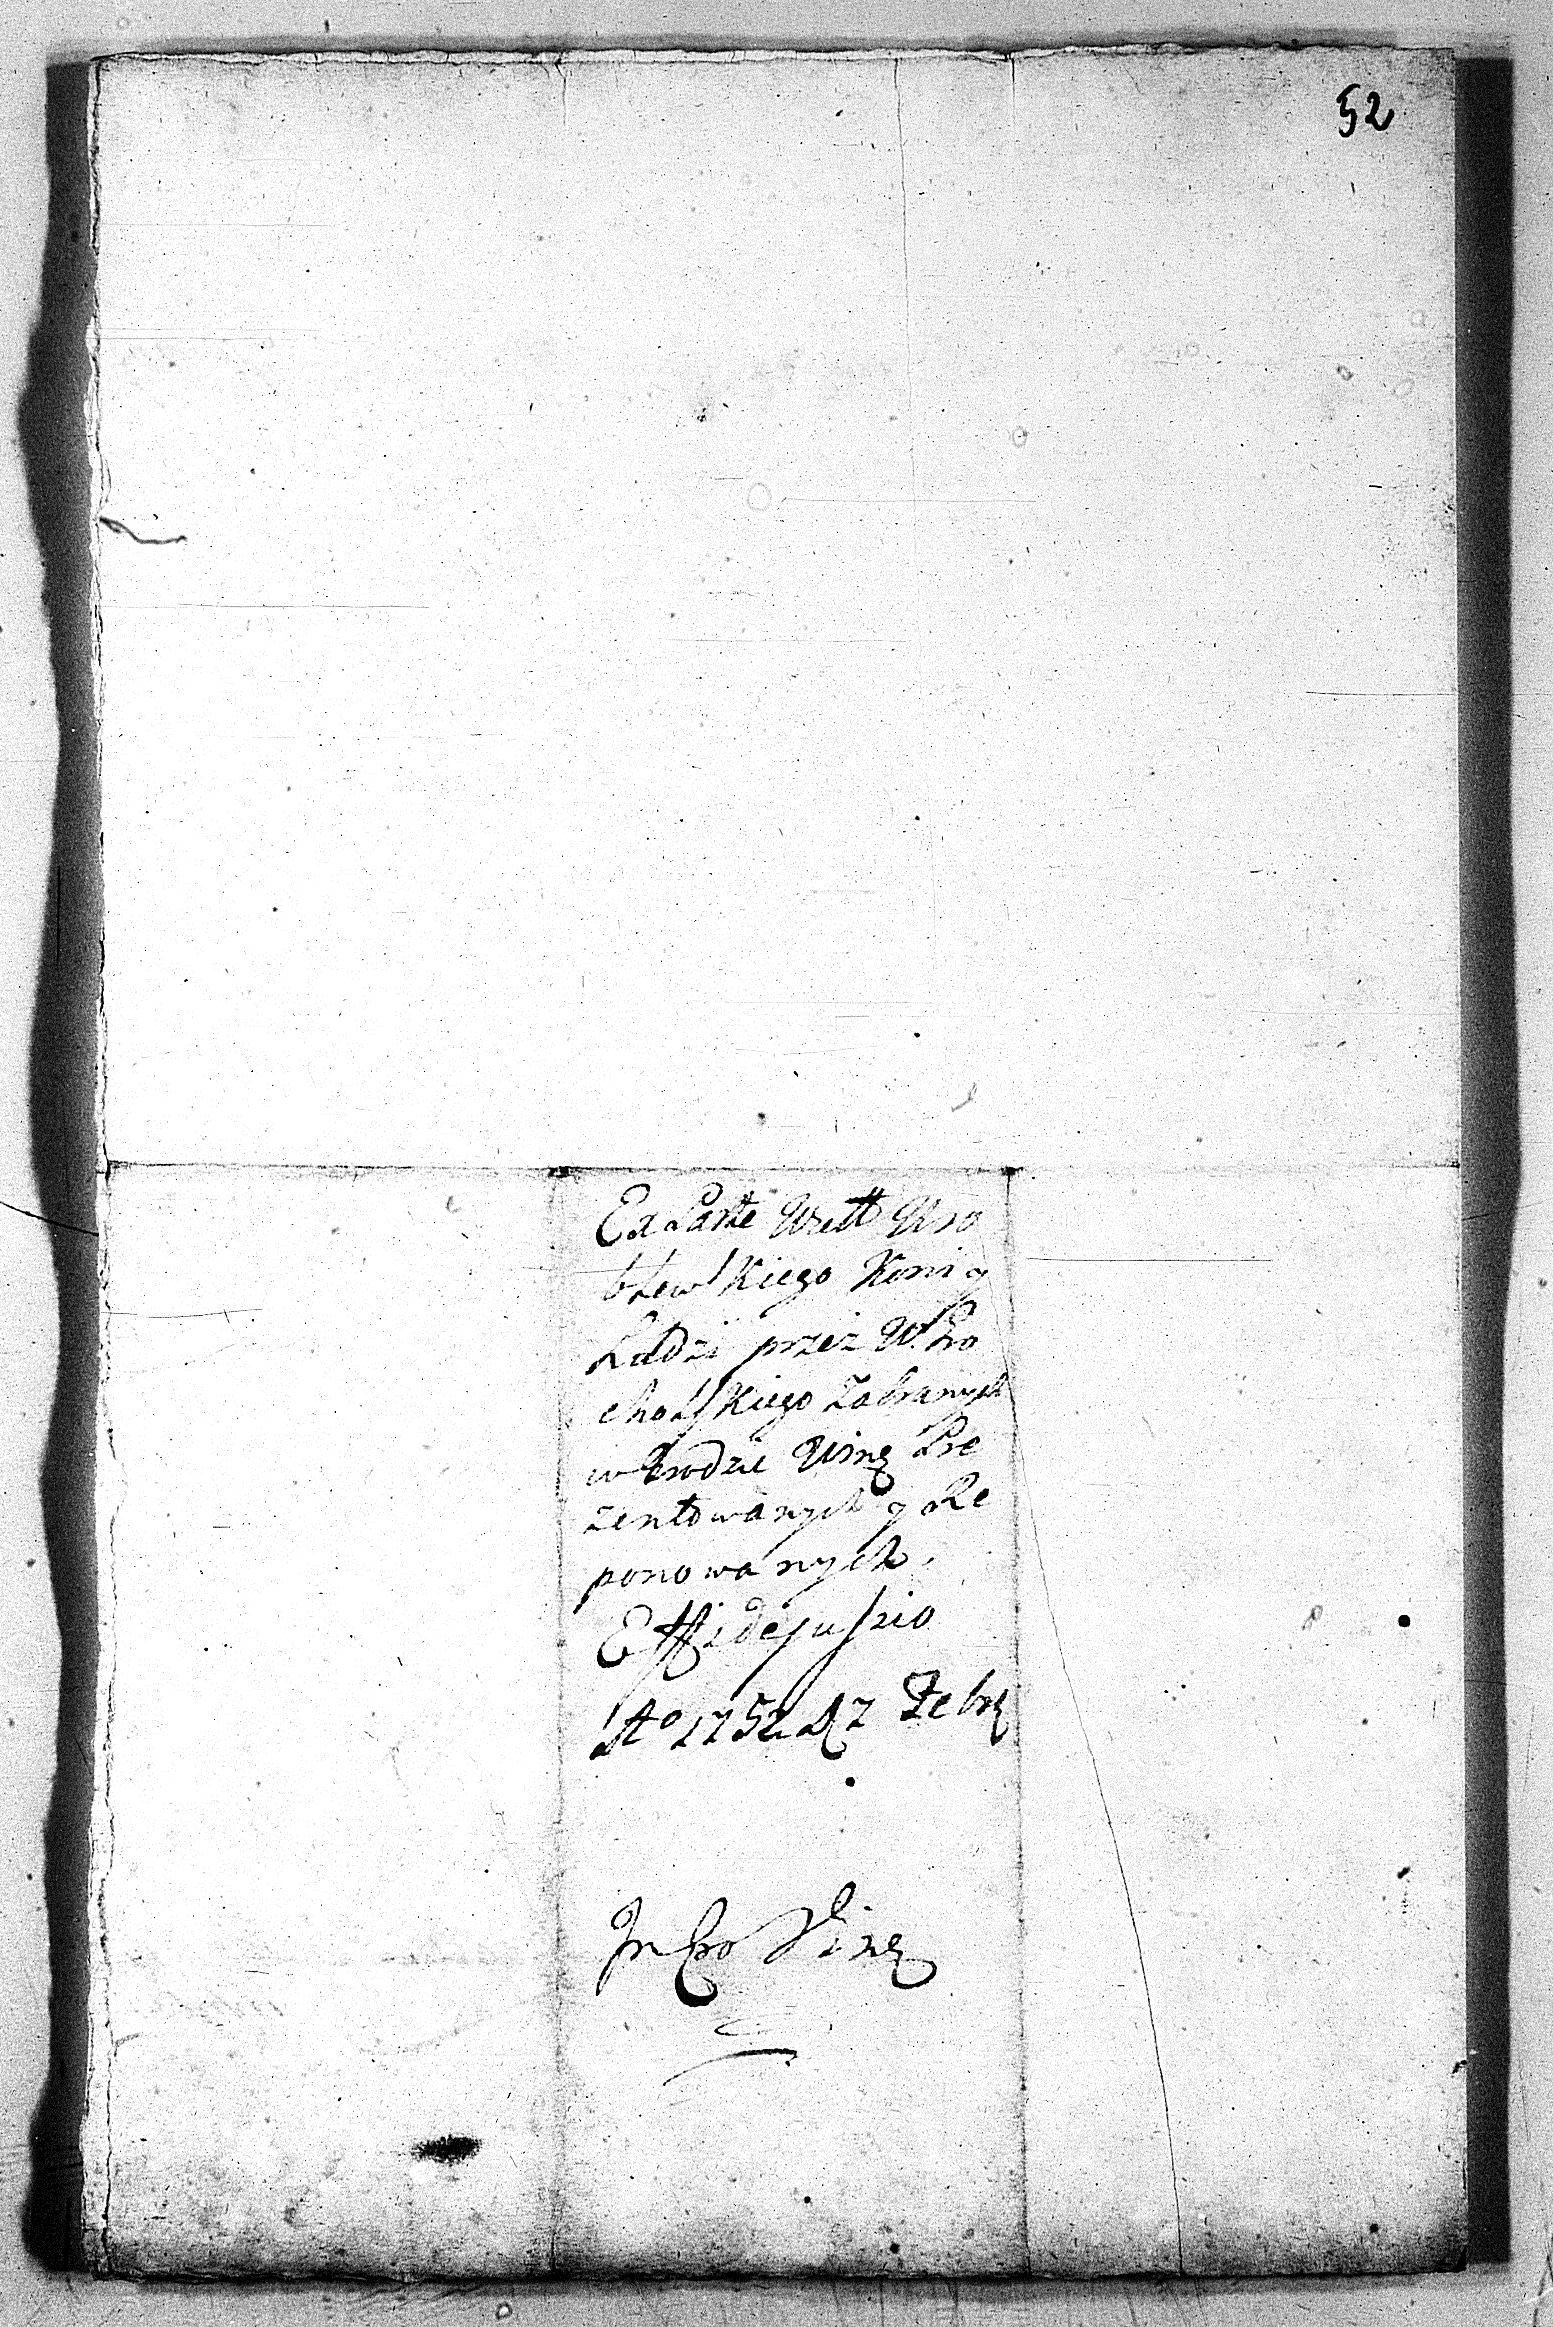 52
Ex Parte Wttt Wro
blewſkiego Koni y
Ludzi przez W. Pro
cholſkiego Zabranych
w Grodzie Winę Pre
zentowanych y Re
ponowanych.
Et Fidejuſsio
Ao 1752 D 7 Febr